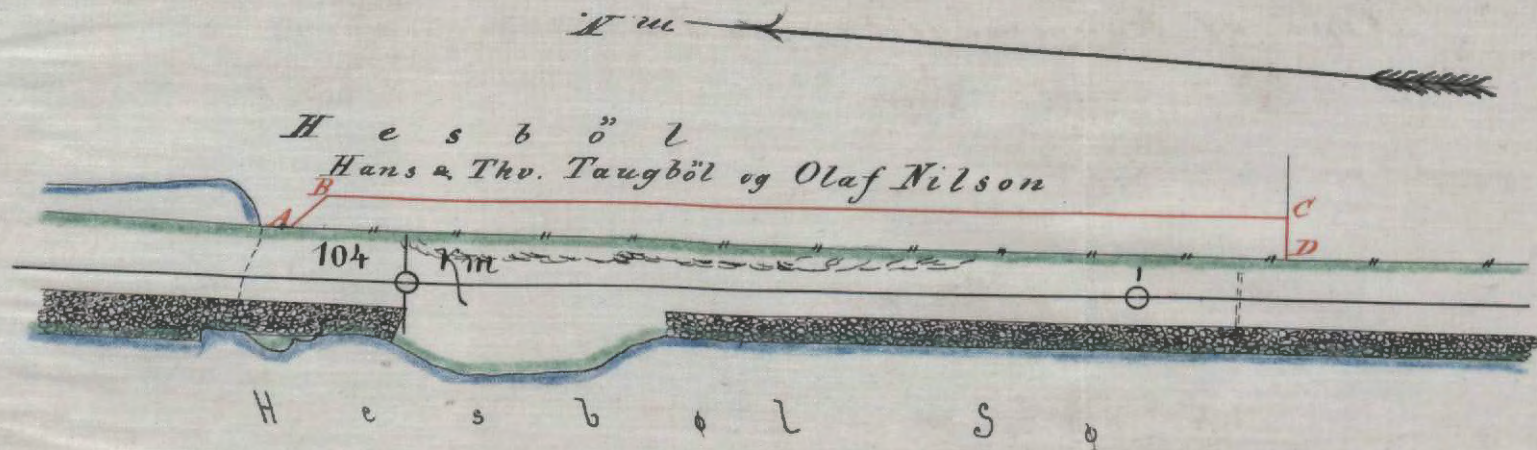 N m
Hesböl
Hans & Thv. Taugböl og Olaf Nilson
B
C
A
D
104 Km
1
Hesbøl Sø